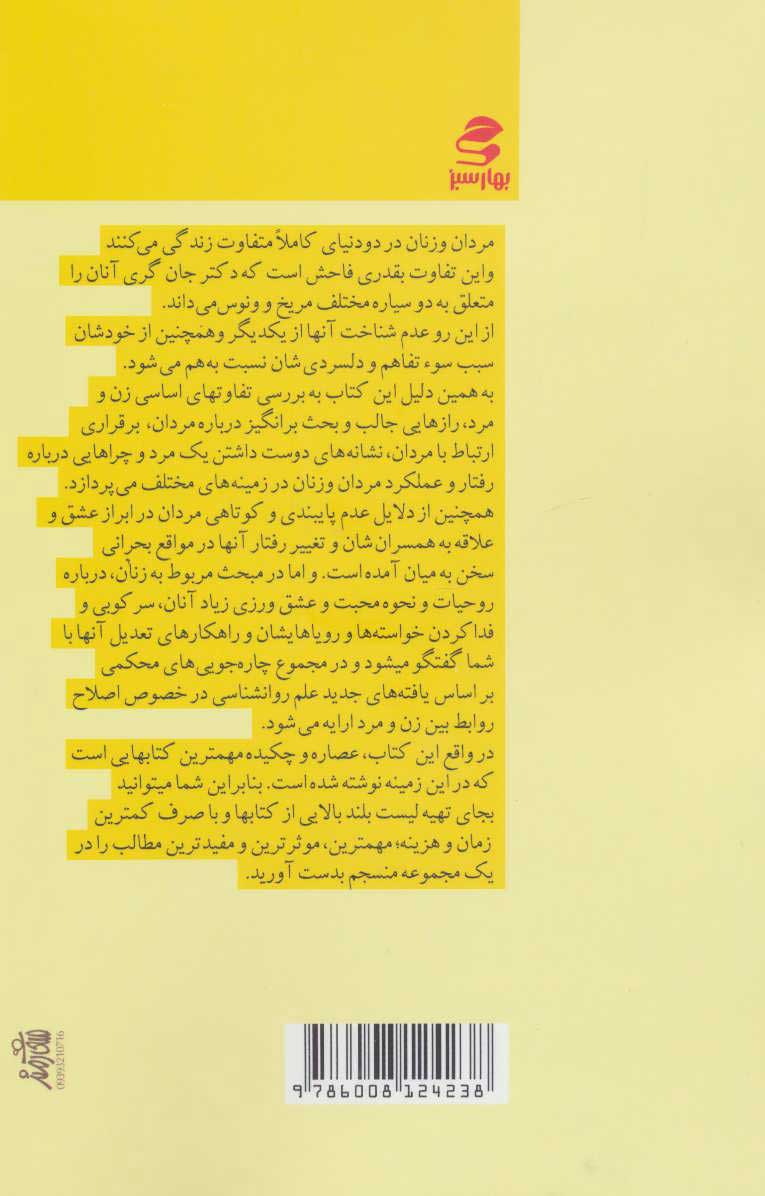 بهار سبز
مردان وزنان در دودنیای کاملاً متفاوت زندگی می‌کنند
واین تفاوت بقدری فاحش است که دکتر جان گری آنان را
متعلق به دو سیاره مختلف مریخ و ونوس می‌داند.
از این رو عدم شناخت آنها از یکدیگر وهمچنین از خودشان
سبب سوء تفاهم و دلسردی شان نسبت به هم می شود.
به همین دلیل این کتاب به بررسی تفاوتهای اساسی زن و
مرد، رازهایی جالب و بحث برانگیز درباره مردان، برقراری
ارتباط با مردان، نشانه‌های دوست داشتن یک مرد و چراهایی درباره
رفتار و عملکرد مردان وزنان در زمینه‌های مختلف می پردازد.
همچنین از دلایل عدم پایبندی و کوتاهی مردان در ابراز عشق و
علاقه به همسران شان و تغییر رفتار آنها در مواقع بحرانی
سخن به میان آمده است. و اما در مبحث مربوط به زنان، درباره
روحیات و نحوه محبت و عشق ورزی زیاد آنان، سرکوبی و
فدا کردن خواسته‌ها و رویاهایشان و راهکارهای تعدیل آنها با
شما گفتگو میشود و در مجموع چاره‌جویی‌های محکمی
بر اساس یافته‌های جدید علم روانشناسی در خصوص اصلاح
روابط بین زن و مرد ارایه می شود.
در واقع این کتاب، عصاره و چکیده مهمترین کتابهایی است
که در این زمینه نوشته شده است. بنابراین شما میتوانید
بجای تهیه لیست بلند بالایی از کتابها و با صرف کمترین
زمان و هزینه؛ مهمترین، موثرترین و مفیدترین مطالب را در
یک مجموعه منسجم بدست آورید.
09393210716
9 786008 124238